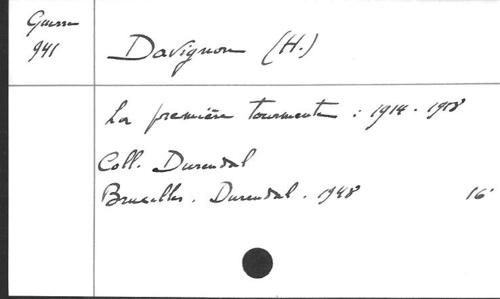 Guerre
941
Davignon (H.)
La première tourmente : 1914 - 1918
Coll. Durendal
Bruxelles. Durendal. 1948 16°